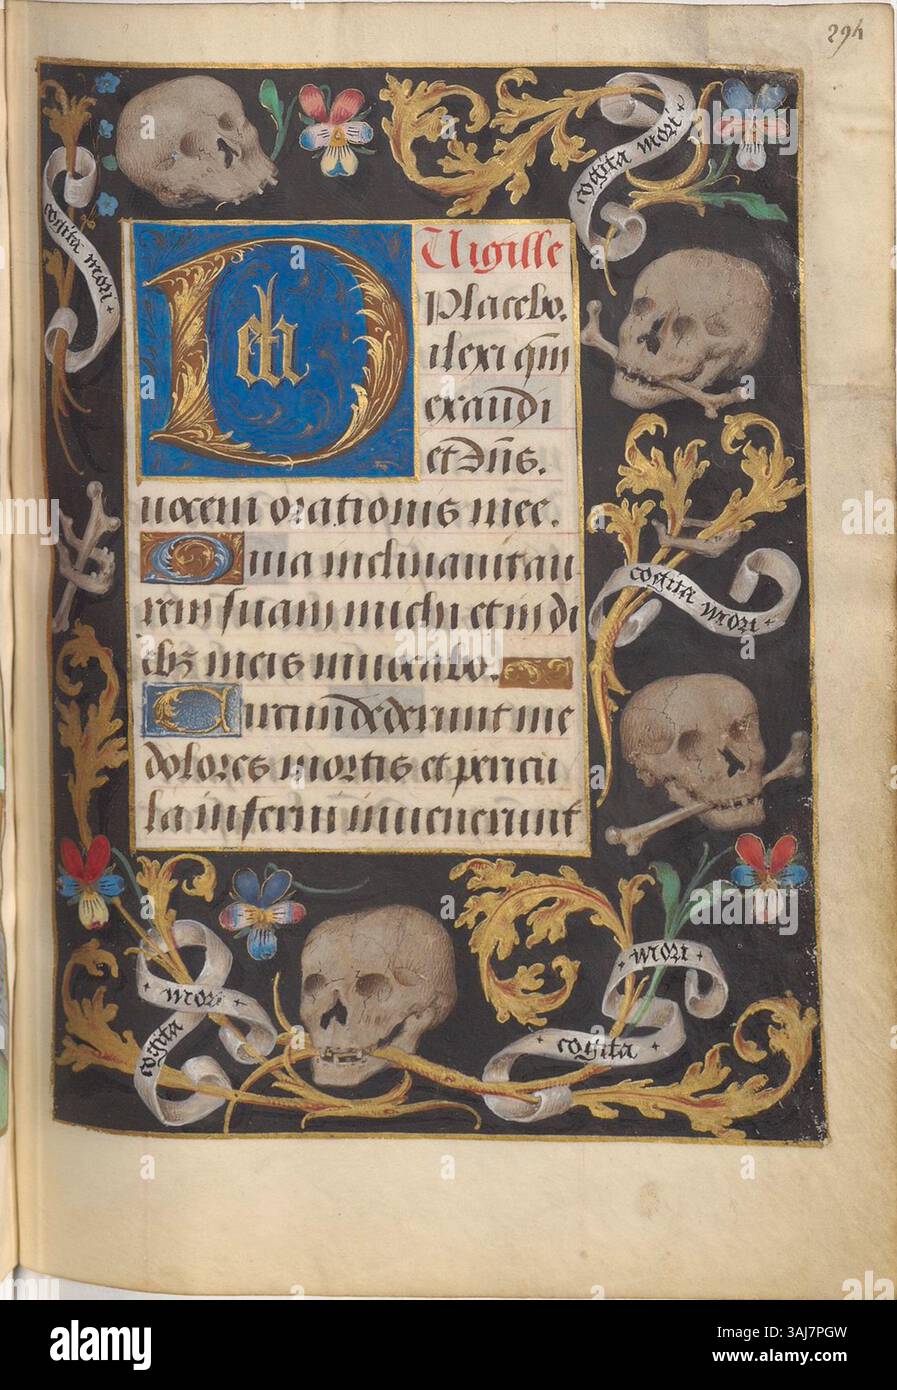 294
cogita mori
cogita mori
Vigille
Placebo.
Dilexi qm̄
exaudi
et Dn̄s.
uocem orationis mee.
Quia inclinauit au
rem suam michi et in di
ebꝫ meis inuocabo.
Circūdederunt me
dolores mortis et pericu
la inferni inuenerunt
cogita mori
mori
cogita
mori
cogita
alamy
Image ID: 3AJ7PGW
www.alamy.com